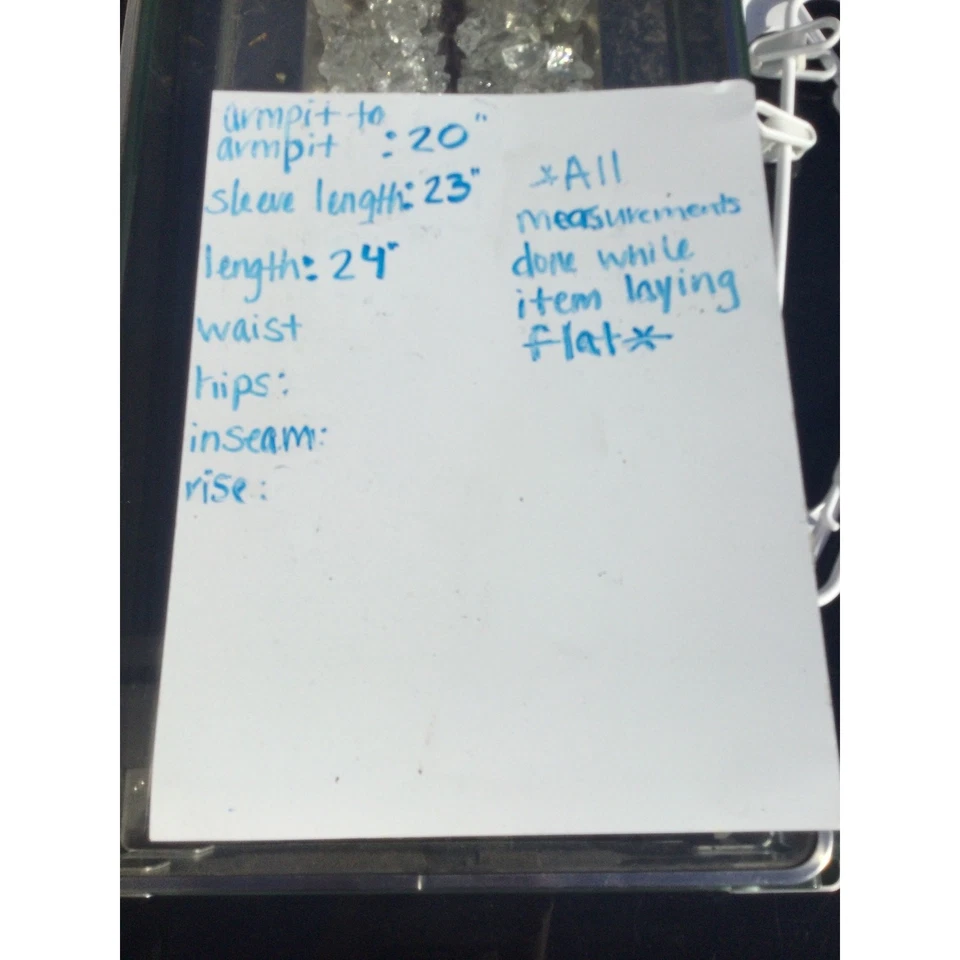 armpit to
armpit : 20"
sleeve length: 23"
length: 24"
waist
hips:
inseam:
rise:
*All
measurements
done while
item laying
flat*